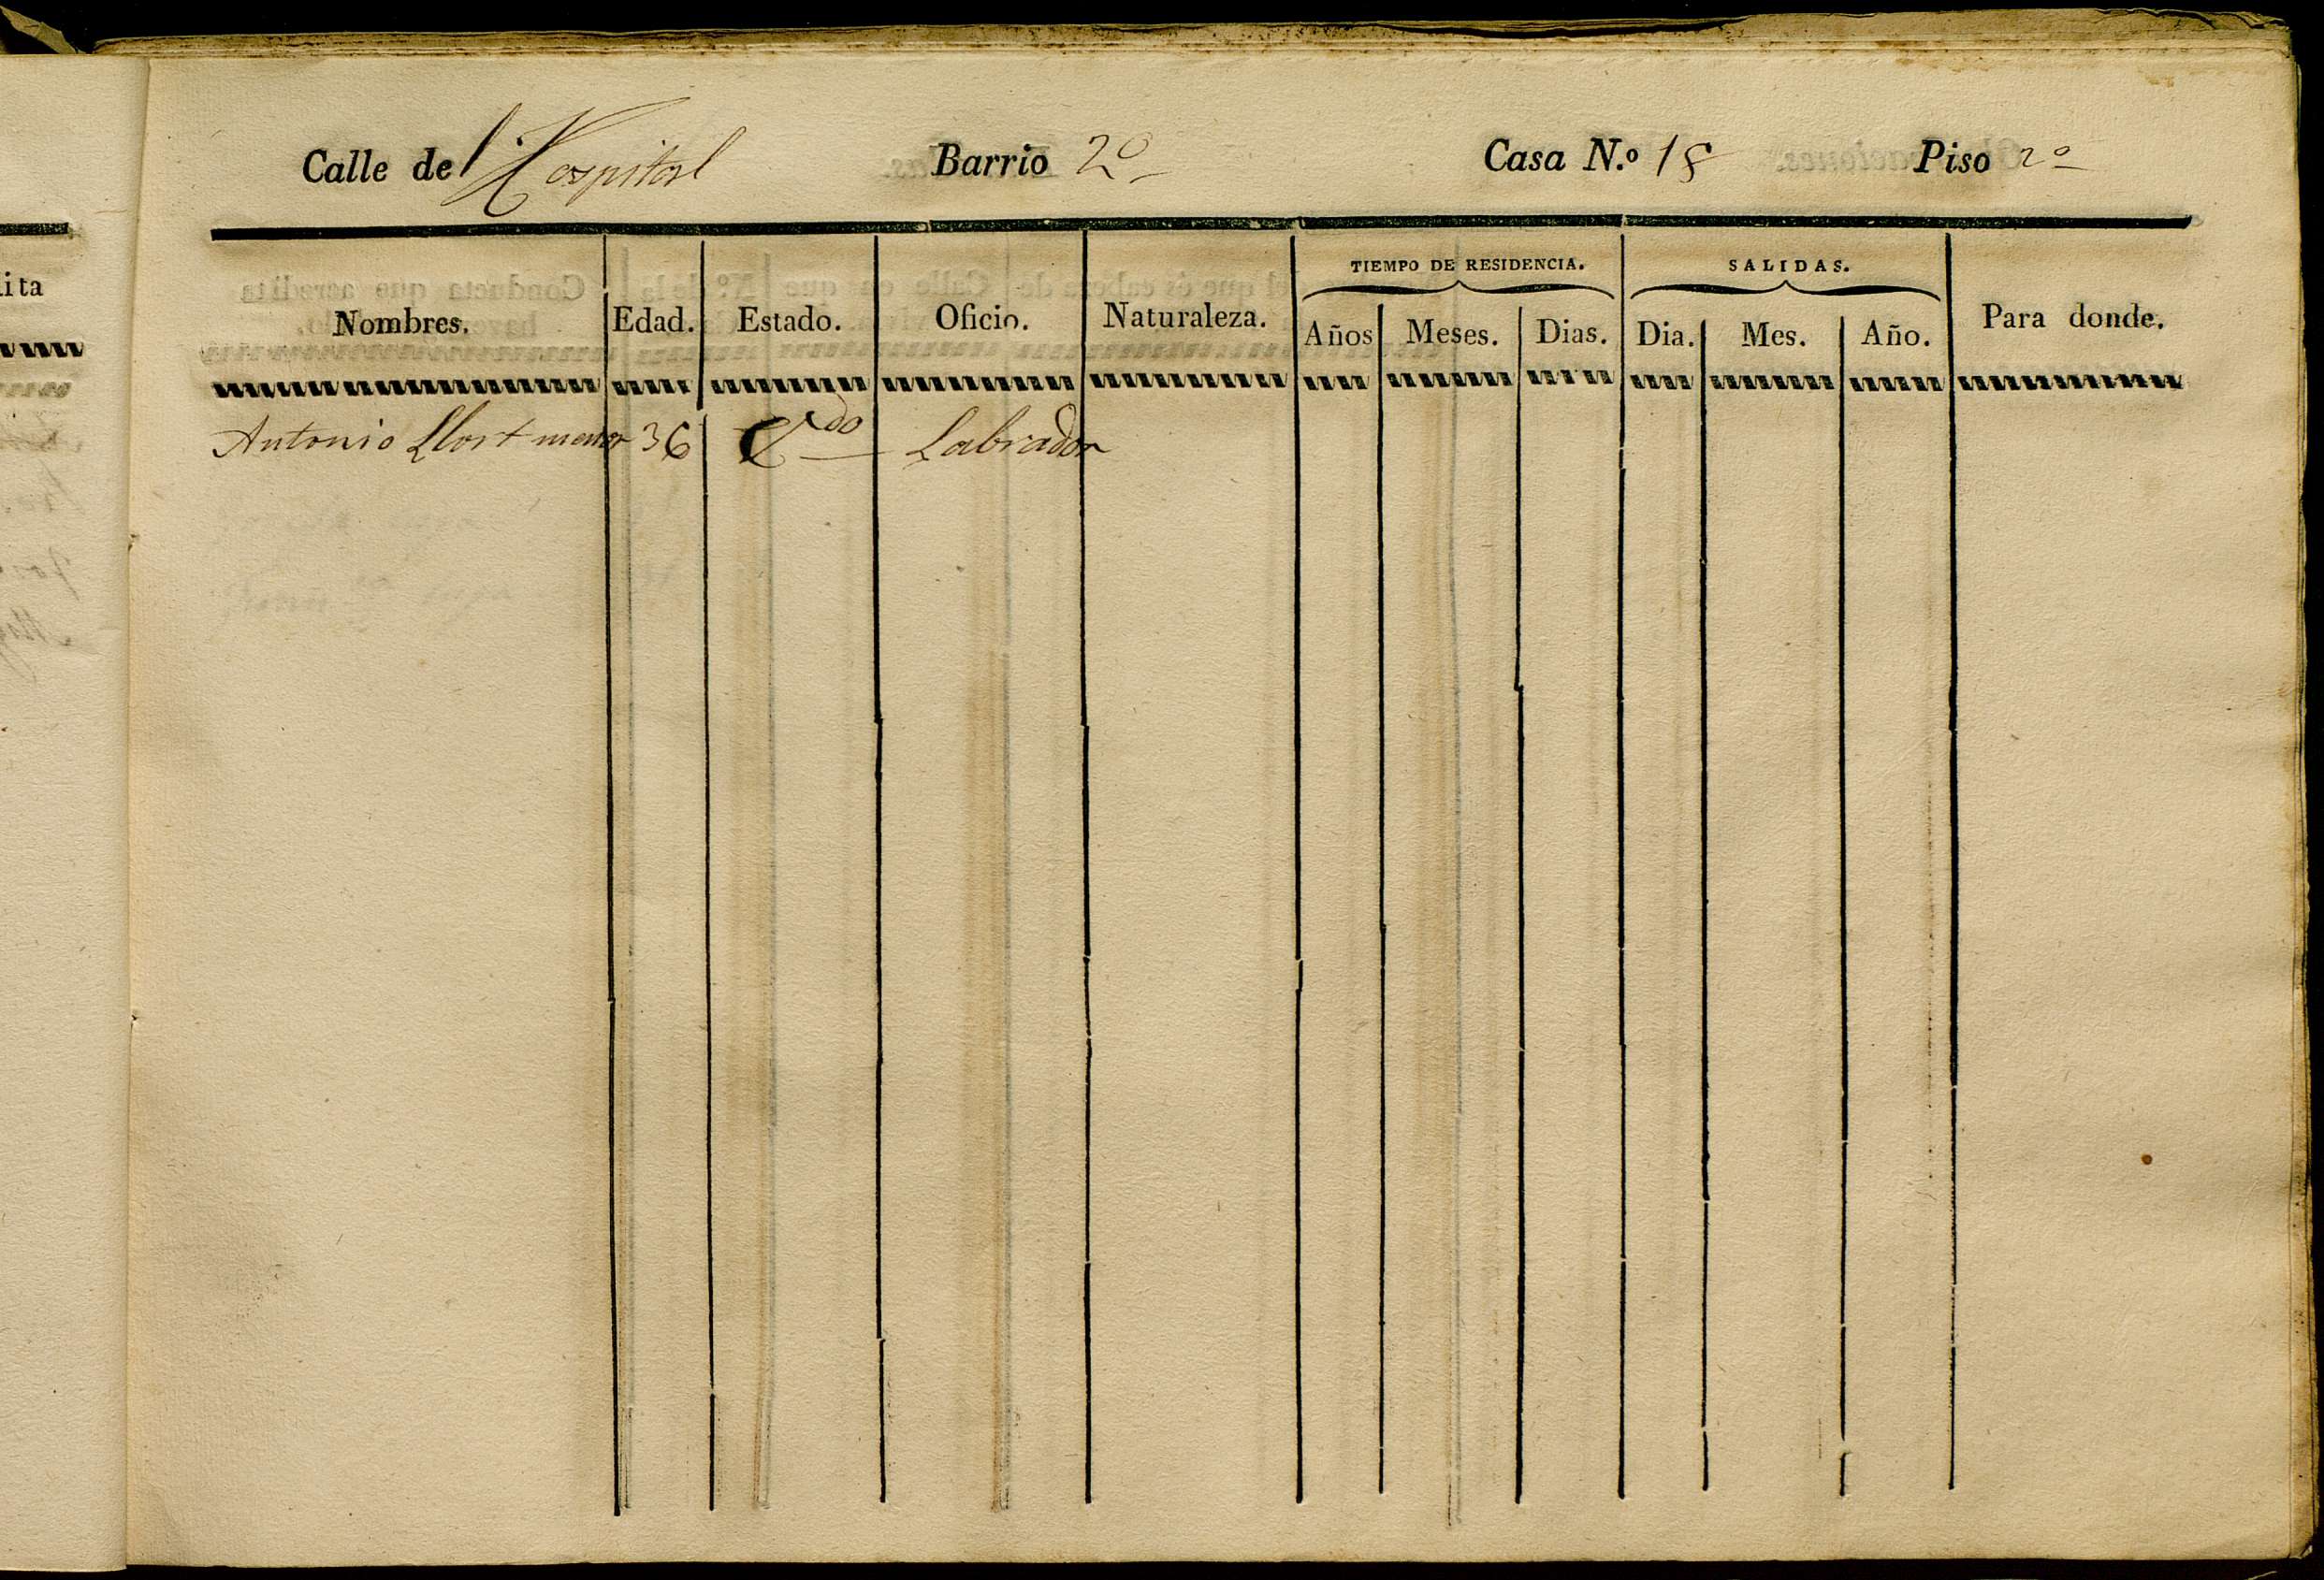 Calle del Hospital Barrio 2º Casa N.º 18 Piso 2º
TIEMPO DE RESIDENCIA. SALIDAS.
Nombres. Edad. Estado. Oficio. Naturaleza. Años Meses. Dias. Dia. Mes. Año. Para donde.
Antonio Llort menor 36 C.do Labrador
ita